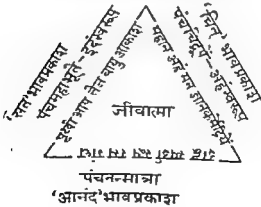 'सत' भावप्रकाश
पंचमहाभूते - इदंस्वरूप
पृथ्वी आप तेज वायु आकाश
'चित' भावप्रकाश
पंचचिद्रूप - अहंस्वरूप
महान अहं मन ज्ञानकर्मेंद्रिये
जीवात्मा
शब्द स्पर्श रूप रस गंध
पंचतन्मात्रा
'आनंद' भावप्रकाश